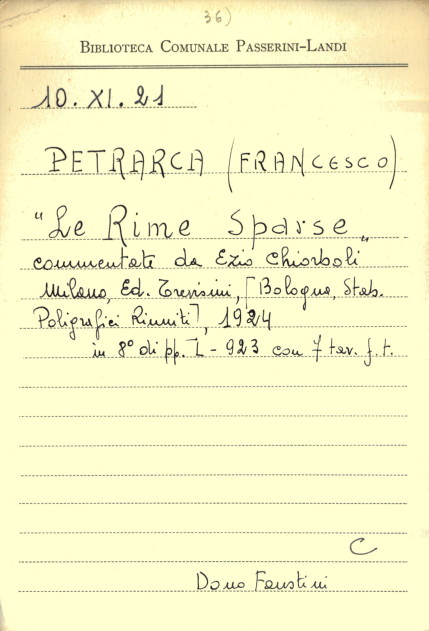 36)
BIBLIOTECA COMUNALE PASSERINI-LANDI
10. XI. 21
PETRARCA (FRANCESCO)
"Le Rime Sparse„
commentate da Ezio Chiorboli
Milano, Ed. Trevisini, [Bologna, Stab.
Poligrafici Riuniti], 1924
in 8° di pp. L - 923 con 7 tav. f. t.
C
Dono Faustini